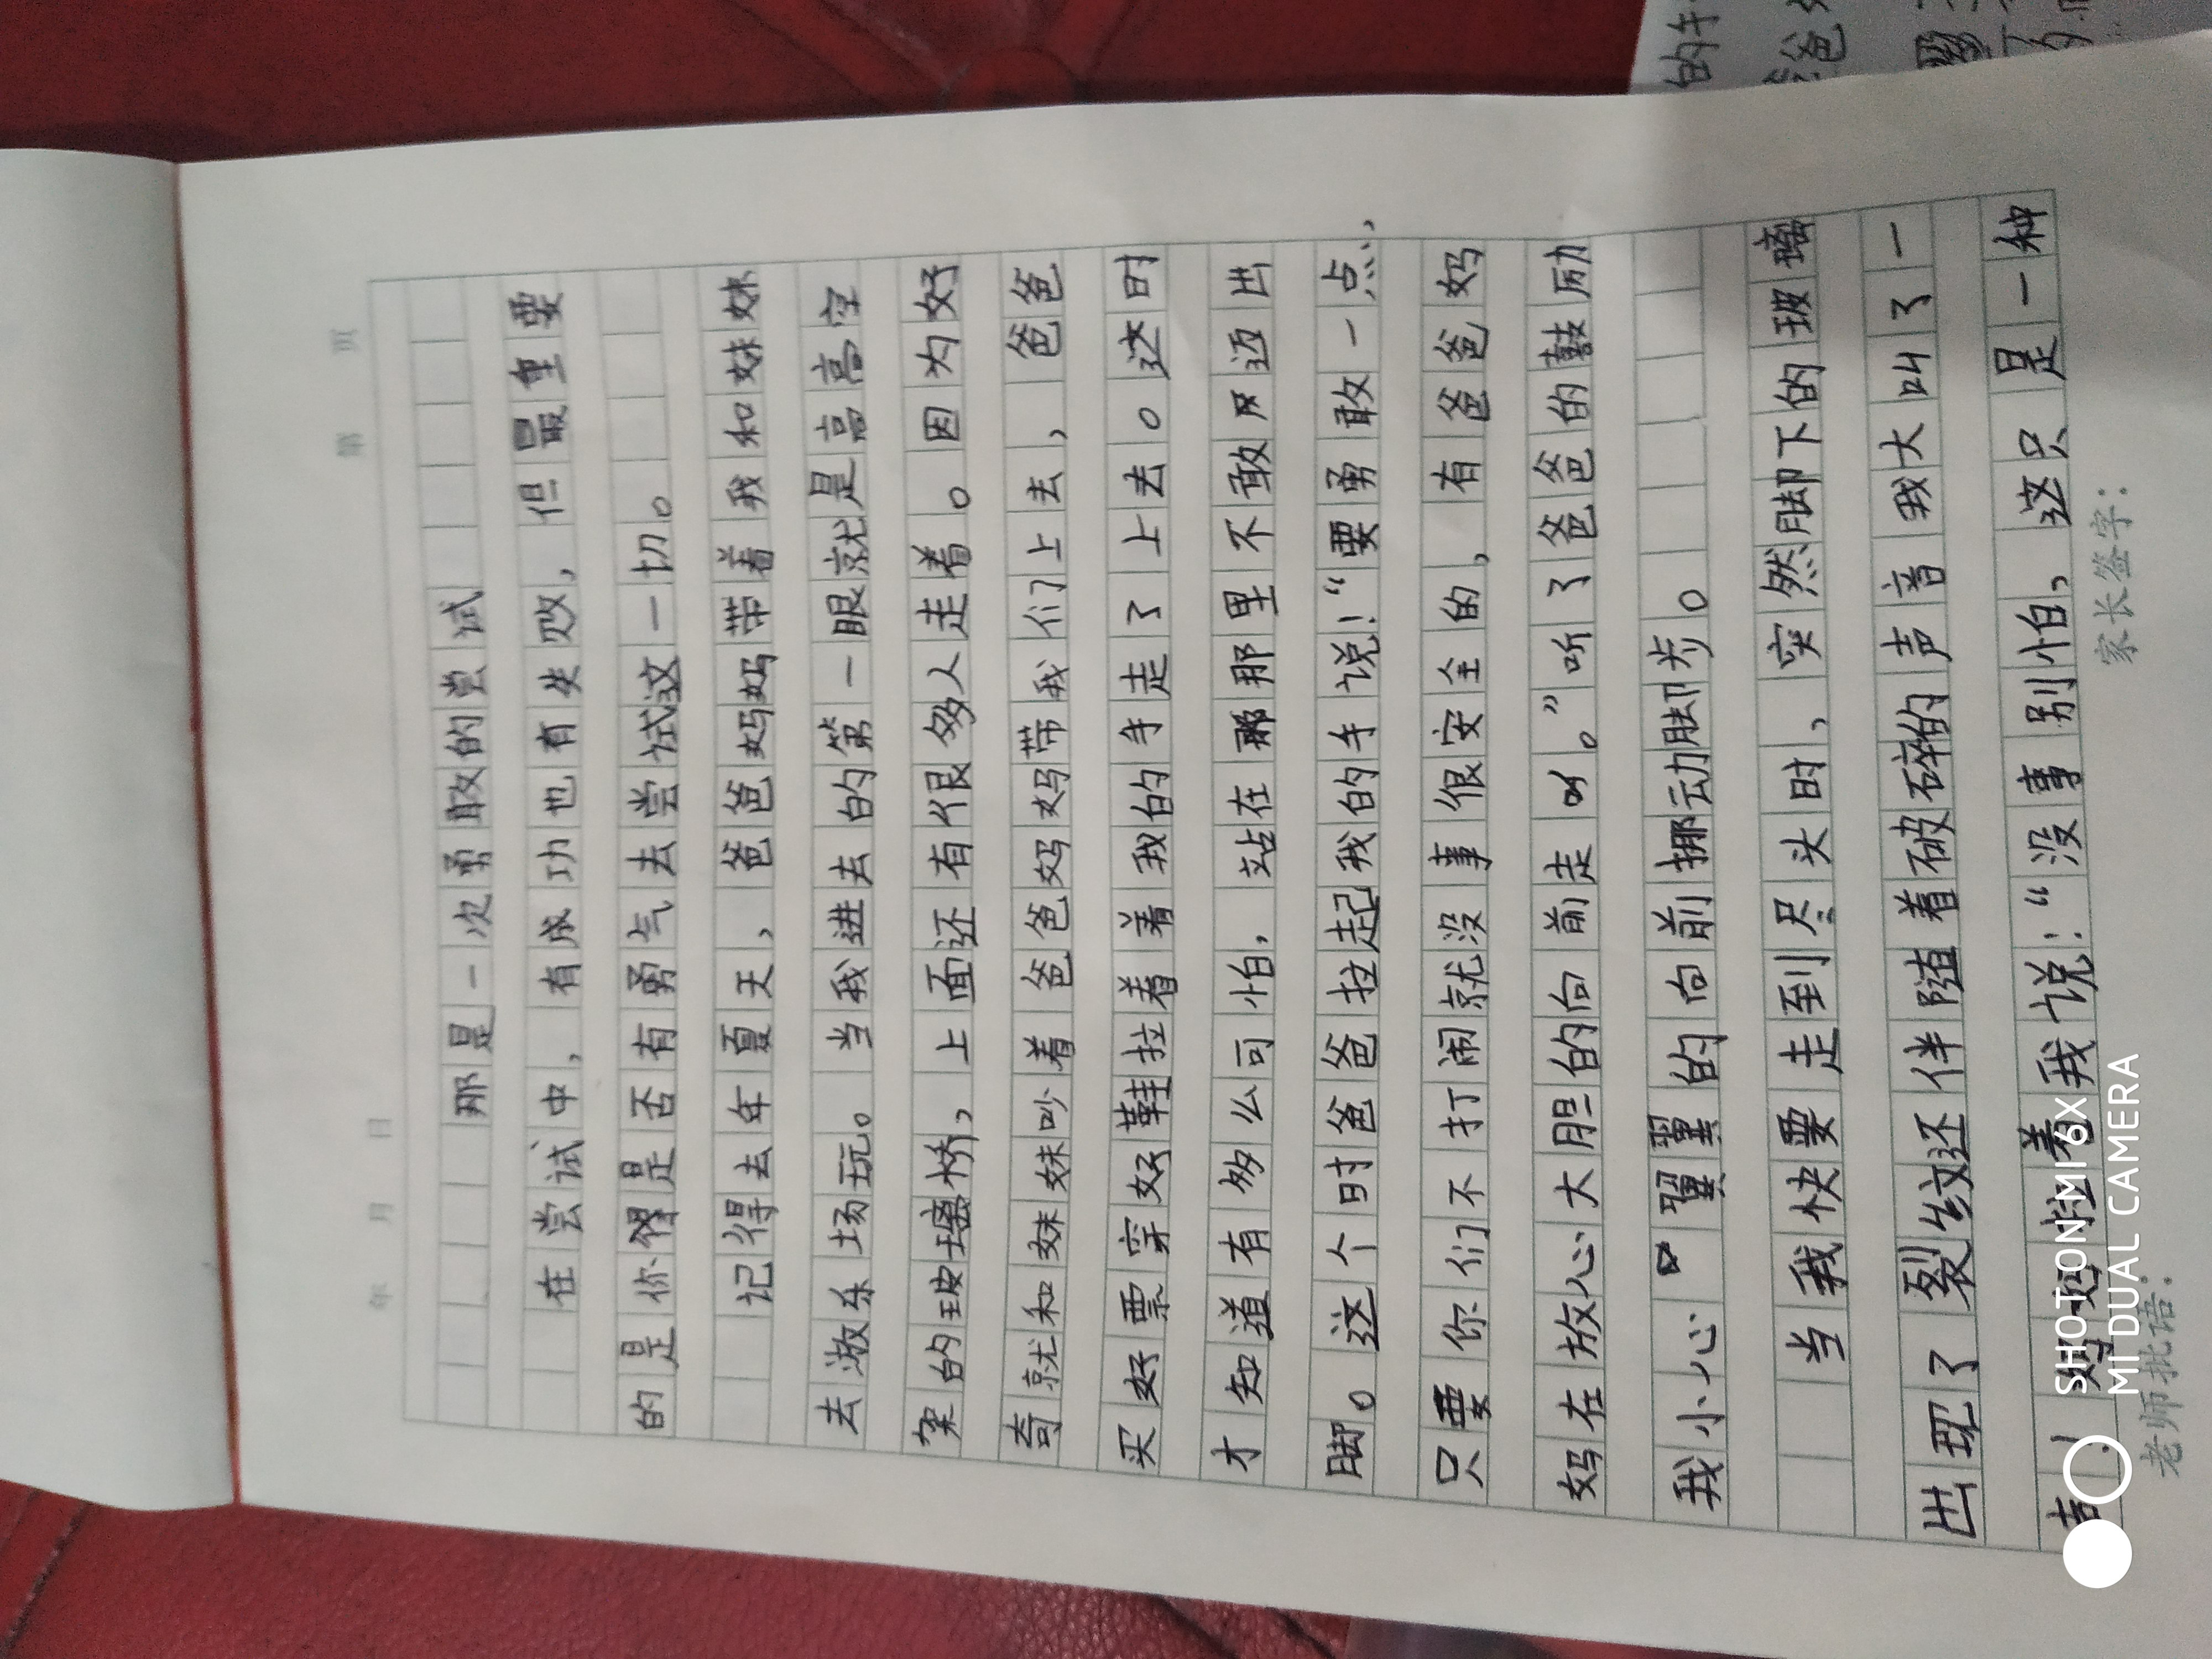 年 月 日 第 页
那是一次勇敢的尝试
在尝试中，有成功也有失败，但最重要
的是你得是否有勇气去尝试这一切。
记得去年夏天，爸爸妈妈带着我和妹妹
去游乐场玩。当我进去的第一眼就是高高空
架的玻璃桥，上面还有很多人走着。因为好
奇就和妹妹吵着爸爸妈妈带我们上去，爸爸
买好票穿好鞋拉着着我的手走了上去。这时
才知道有多么可怕，站在那那里不敢迈出
脚。这个时爸爸拉起我的手说！“要勇敢一点，
只要你们不打闹就没事很安全的，有爸爸妈
妈在放心大胆的向前走吧。”听了爸爸的鼓励
我小心翼翼的向前挪动脚步。
当我快要走到尽头时，突然脚下的玻璃
出现了裂纹还伴随着破碎的声音我大叫了一
声！妈妈拉着我说：“没事别怕，这只是一种
老师批语： 家长签字：
SHOT ON MI 6X
MI DUAL CAMERA
的手
爸